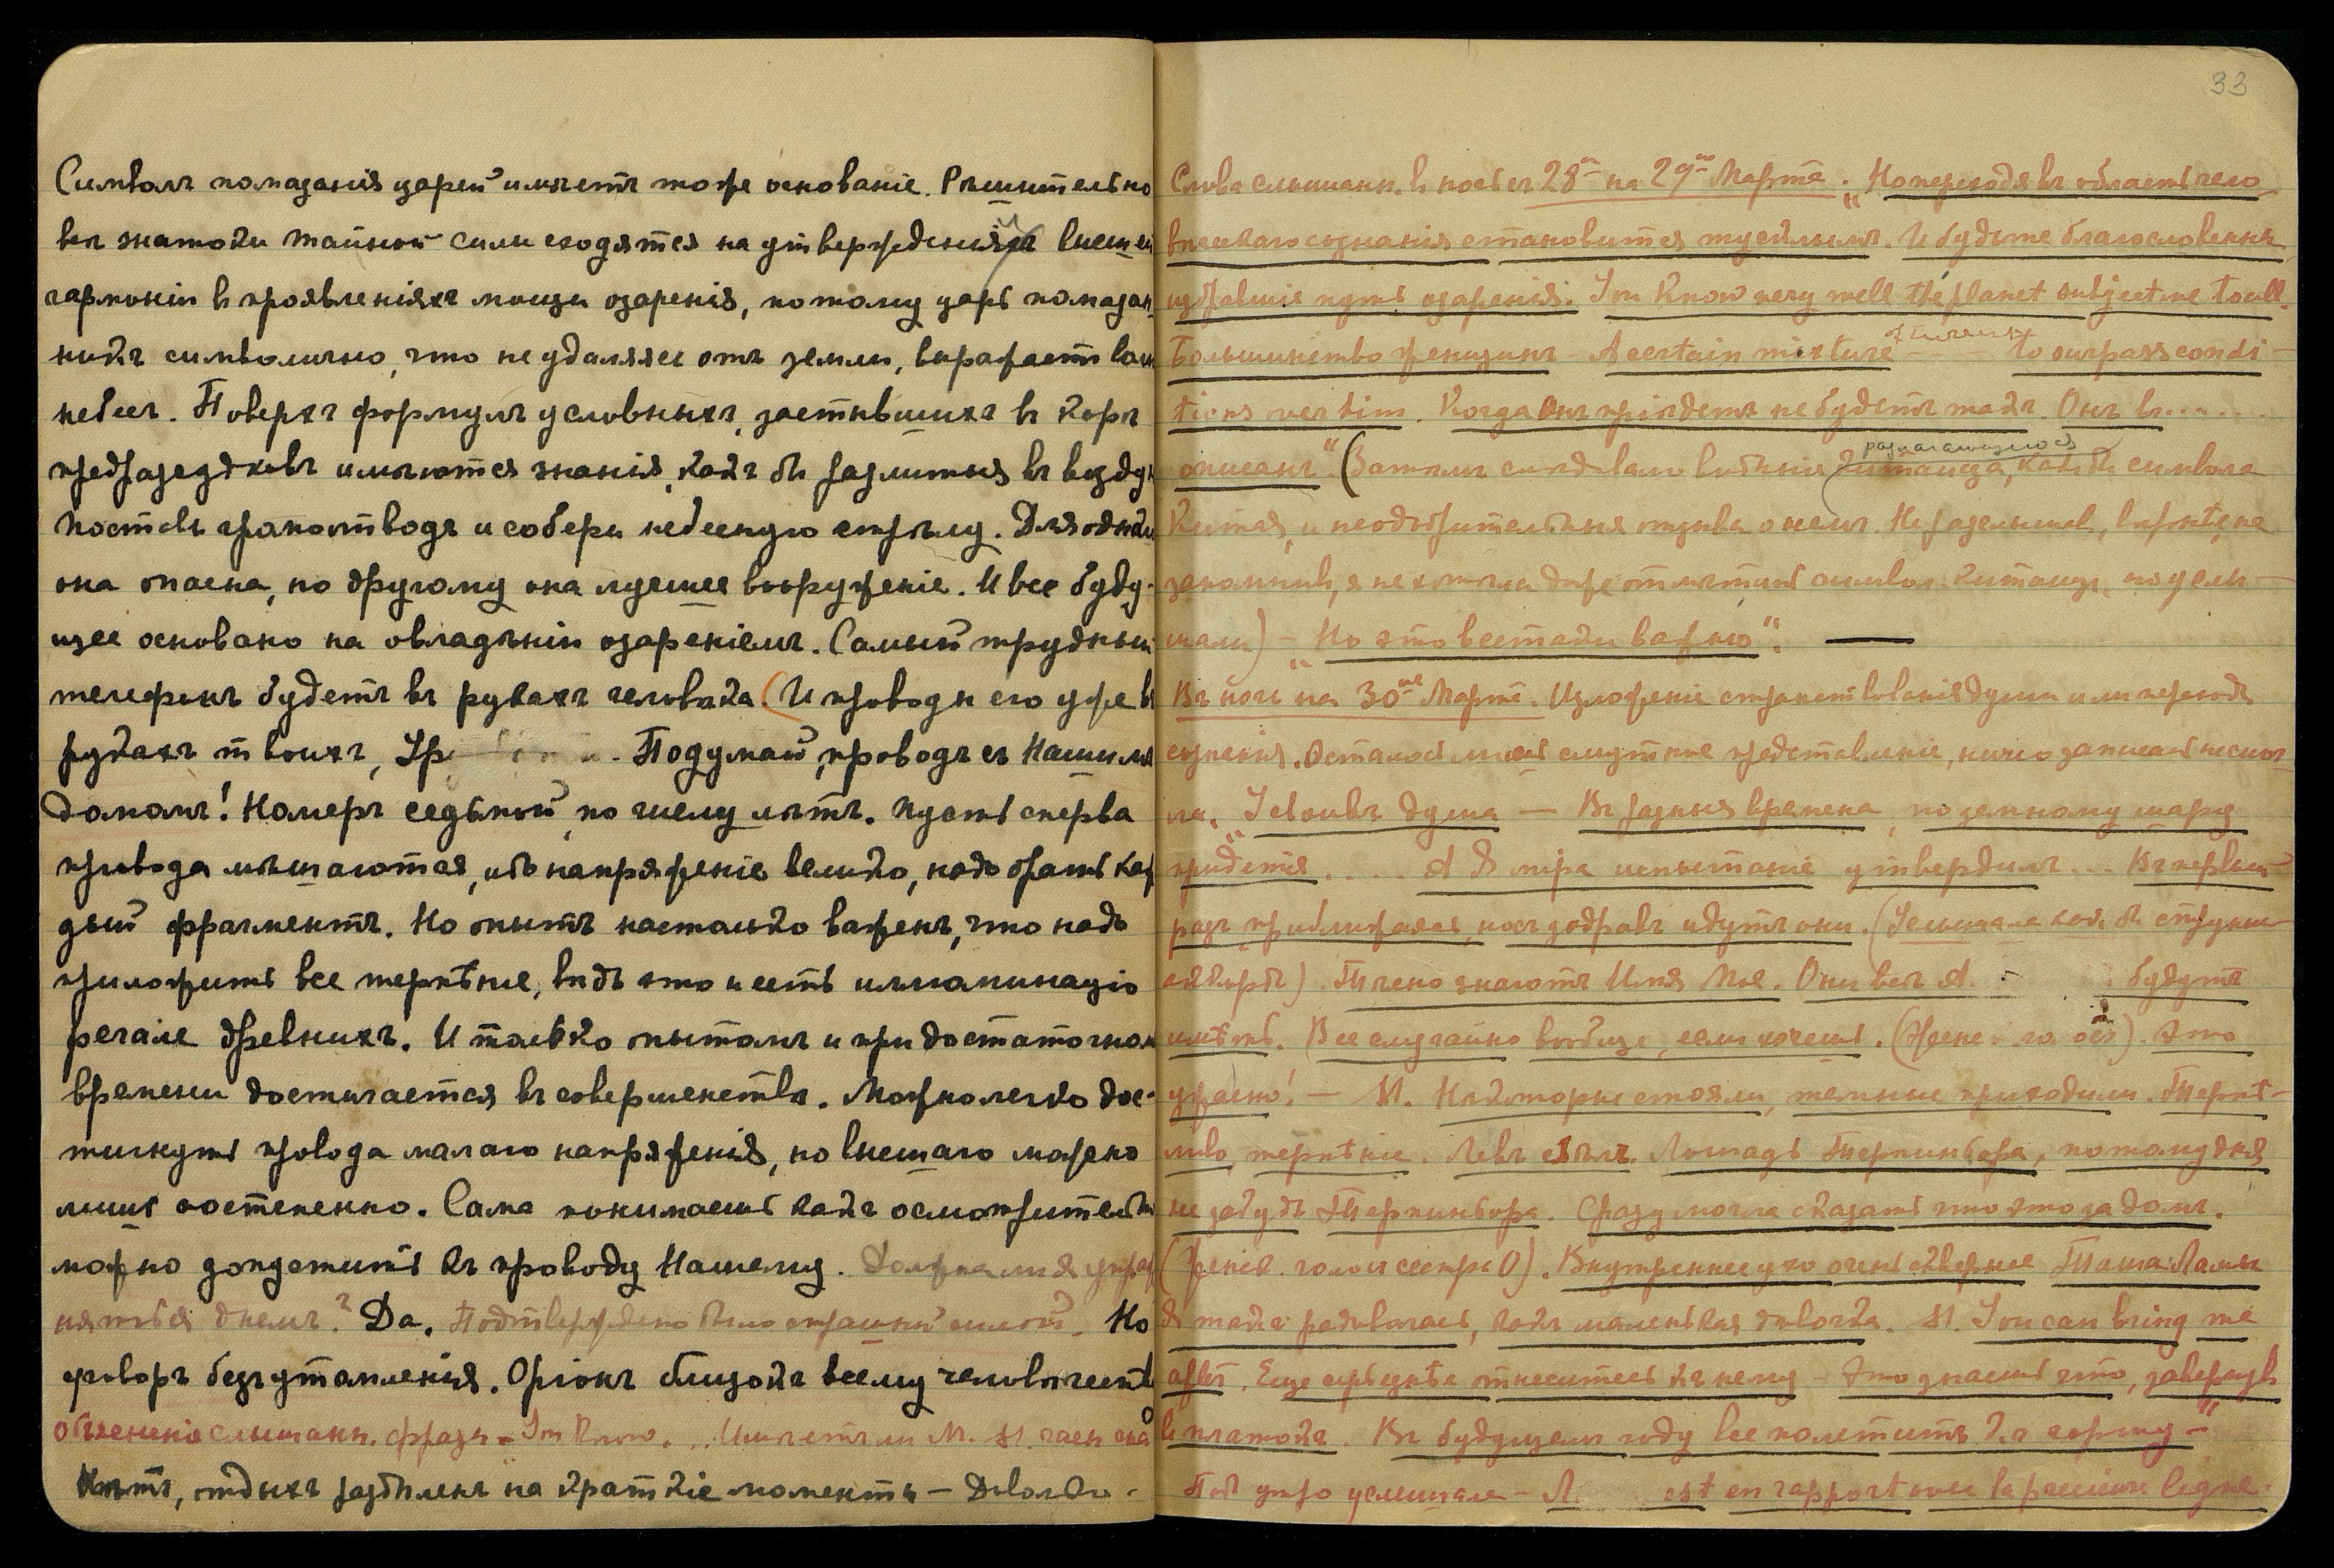 Символъ помазанія царей имѣетъ тоже основаніе. Рѣшительно
всѣ знатоки тайной силы сходятся на утвержденія высшей
гармоніи в проявленіяхъ мощи озаренія, потому царь помазан-
никъ символично, что не удаляясь отъ земли, выражаетъ волю
небесъ. Поверхъ формулъ условныхъ, застывшихъ въ корѣ
предразсудковъ имѣются знанія, какъ бы разлитыя въ воздухѣ
Поставь громоотводъ и собери небесную стрѣлу. Для одних
она опасна, по другому она лучшее вооруженіе. И все буду-
щее основано на овладѣніи озареніемъ. Самый трудный
телефонъ будетъ въ рукахъ человѣка (И проводы его уже въ
рукахъ твоихъ, Ур. Подумай, проводъ съ Нашимъ
домомъ! Номеръ седьмой, по числу лѣтъ. Пусть сперва
провода мѣшаются, ибо напряженіе велико, надо брать каж
дый фрагментъ. Но опытъ настолько важенъ, что надо
приложить все терпѣніе, вѣдь это и есть иллюминацiо
регале древнихъ. И только опытомъ и при достаточном
времени достигается въ совершенствѣ. Можно легко дос-
тигнуть провода малаго напряженія, но высшаго можно
лишь постепенно. Сама понимаешь какъ осмотрительно
можно допустить къ проводу Нашему. Должна ли я упраж
няться днемъ? Да. Подтверждено было страшной силой. Но
уговоръ безъ утомленія. Оріонъ близокъ всему человѣчеств
Объясненіе слышанн. фразы – You Know. .. Имѣетъ ли М. М. часы сна?
Нѣтъ, отдыхъ раздѣленъ на краткіе моменты –
33
Слова слышанн. в ночь съ 28го на 29ое Марта. „Но переходя въ область чего
высшаго сознанія становится тусклымъ. И будьте благословенны
избравшіе путь озаренія. You Know very well the planet subjective to all.
Большинство женщинъ – A certain mixture – to surpass condi-
tions over him. Когда Онъ придетъ не будетъ такъ. Онъ въ.....
описанъ" (Затѣмъ слѣдовало видѣніе разлагающагося Китайца, какъ бы символа
Китая, и неодобрительные отзывы о немъ. Не разслышавъ, вѣрнѣе, не
запомнивъ, я не хотѣла даже отмѣтить символ. китайца, но услы-
шала) – „Но это все таки важно".
Въ ночь на 30ое Марта. Изложеніе странствованія души или перехода
сознанія. Осталось лишь смутное представленіе, ничего записать не смог-
ла. „Усвоивъ душа – Въ разныя времена, по земному шару
придется .... А Я міра испытаніе утвердилъ ... Въ первый
разъ приближаясь, носъ задравъ идутъ они. (Услышала какъ бы струнные
аккорды). Точно знаютъ Имя Мое. Они всѣ А. будутъ
имѣть. Все случайно вообще, если хочешь. (Женс. гол.) Это
ужасно! – М. На Моріи стояли, темные приходили. Терпѣ-
ливо, терпѣніе. Левъ съѣлъ. Лошадь Теркинбора, потому дня
не забудь Теркинбора. Сразу могла сказать что это за домъ.
(Женск. голосъ сестры О). Внутреннее ухо очень скверное Таши Ламы
Я такъ радовалась, какъ маленькая дѣвочка. М. You can bring me
after. Еще серьезнѣе отнеситесь къ нему – Это значитъ что, завернувъ
в платокъ. Въ будущемъ году все полетитъ къ чорту –"
Под утро услышала – Л. est en rapport avec la première ligne.